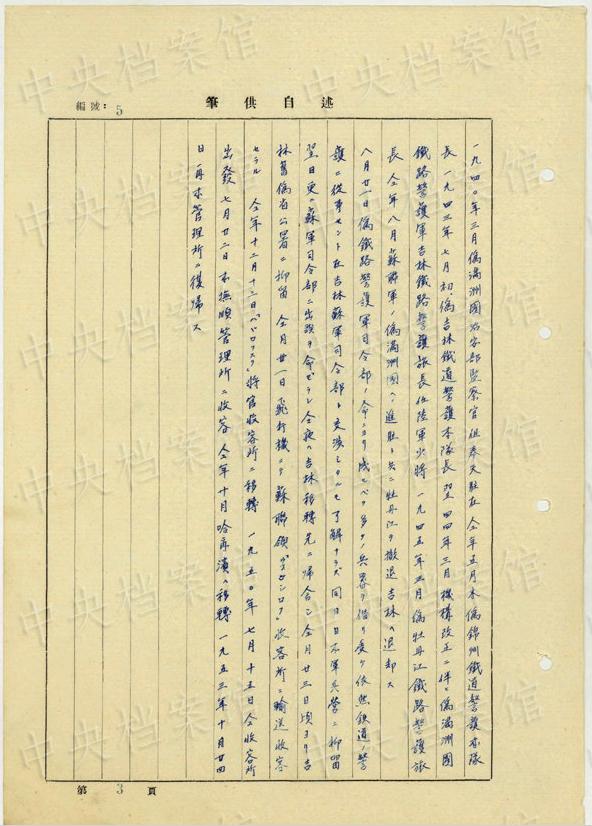 編號：5
筆供自述
一九四〇年三月偽満洲國治安部監察官但奉天駐在 仝年五月末偽錦州鐵道警護本隊
長 一九四三年七月初偽吉林鐵道警護本隊長 翌四四年三月機構改正ニ伴ヒ偽満洲國
鐵路警護軍吉林鐵路警護旅長任陸軍少將 一九四五年三月偽牡丹江鐵路警護旅
長 仝年八月蘇聯軍ノ偽満洲國ヘノ進駐ト共ニ牡丹江ヲ撤退吉林ヘ退却ス
八月廿一日偽鐵路警護軍司令部ノ命ニヨリ成ルベク多クノ兵器ヲ借リ受ケ依然鉄道ノ警
護ニ從事セント在吉林蘇軍司令部ト交渉シタルモ了解ナラズ 同日日本軍兵營ニ抑留
翌日更ニ蘇軍司令部ニ出頭ヲ命ゼラレ仝夜ハ吉林移轉先ニ帰舎シ仝月廿三日頃ヨリ吉
林舊偽省公署ニ抑留 仝月廿一日飛行機ニテ蘇聯領 収容所ニ輸送収容
セラル 仝年十二月十三日「ハバロフスク」將官収容所ニ移轉 一九五〇年七月十五日仝収容所
出發 七月廿二日 撫順管理所ニ収容 仝年十月哈爾濱ヘ移轉 一九五三年十月廿四
日再ビ管理所ニ復帰ス
第 3 頁
中央档案馆